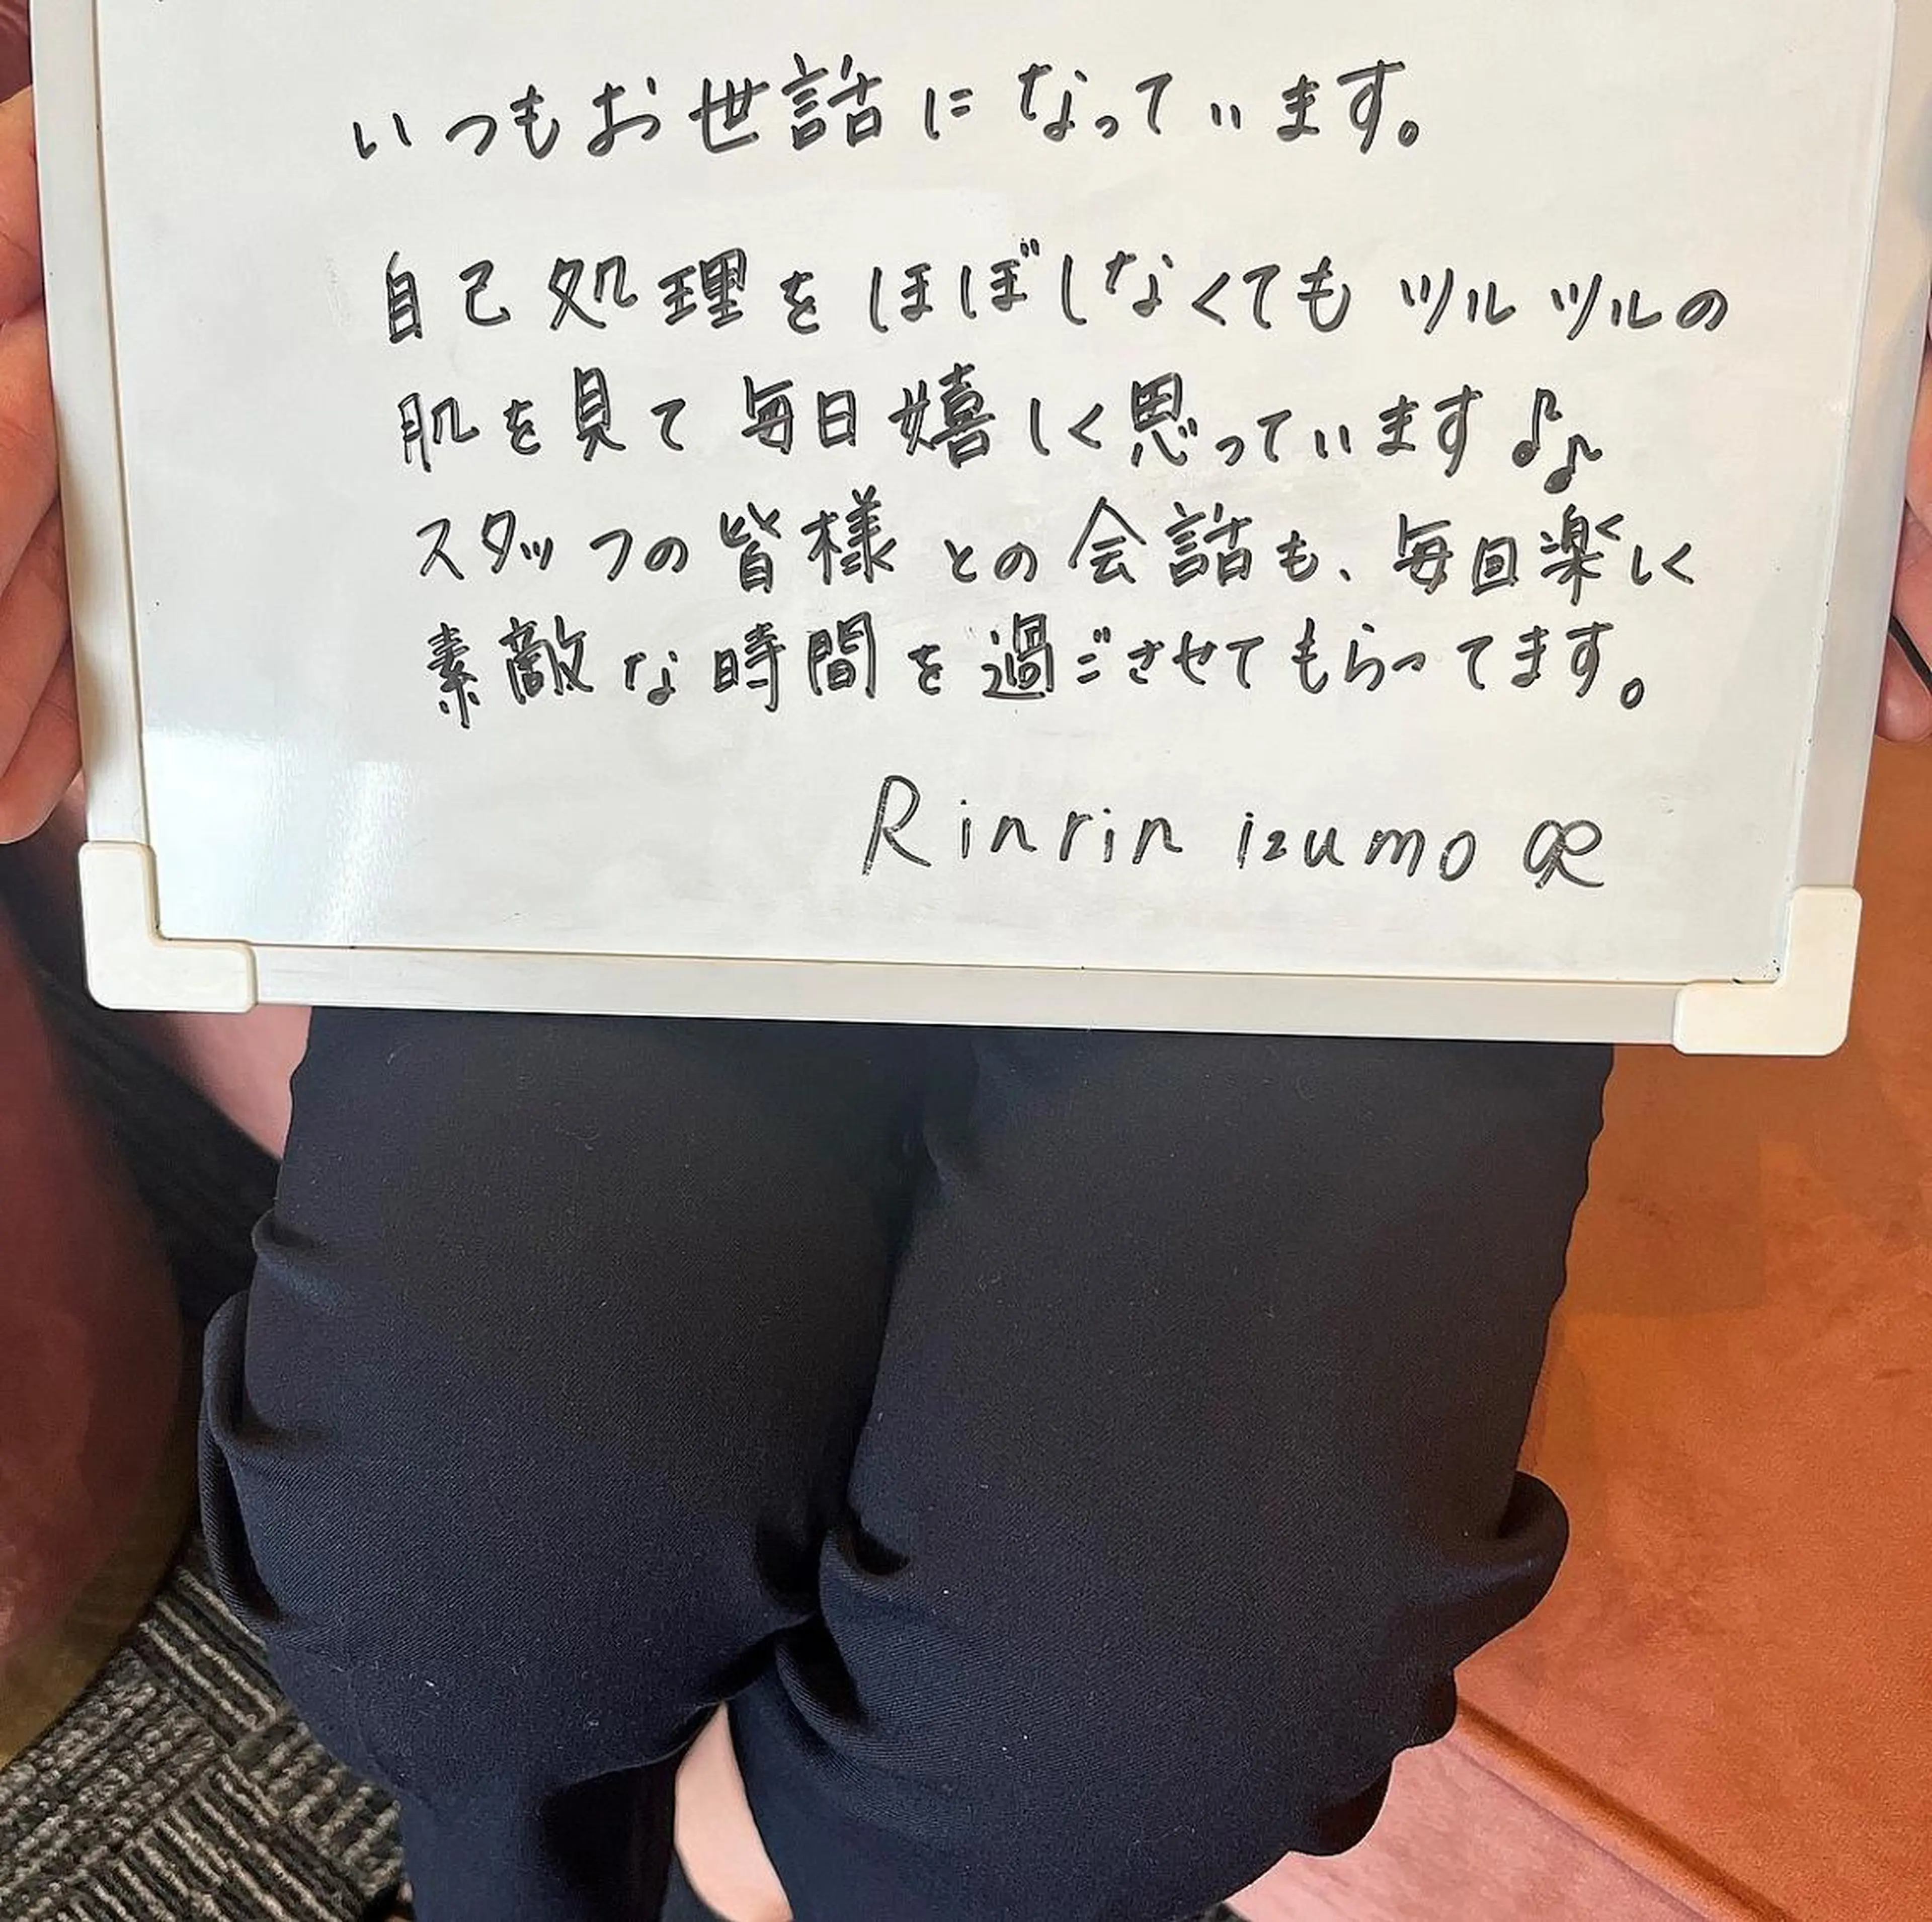 いつもお世話になっています。
自己処理をほぼしなくてもツルツルの
肌を見て毎日嬉しく思っています♪♪
スタッフの皆様との会話も、毎回楽しく
素敵な時間を過ごさせてもらってます。
Rinrin izumo